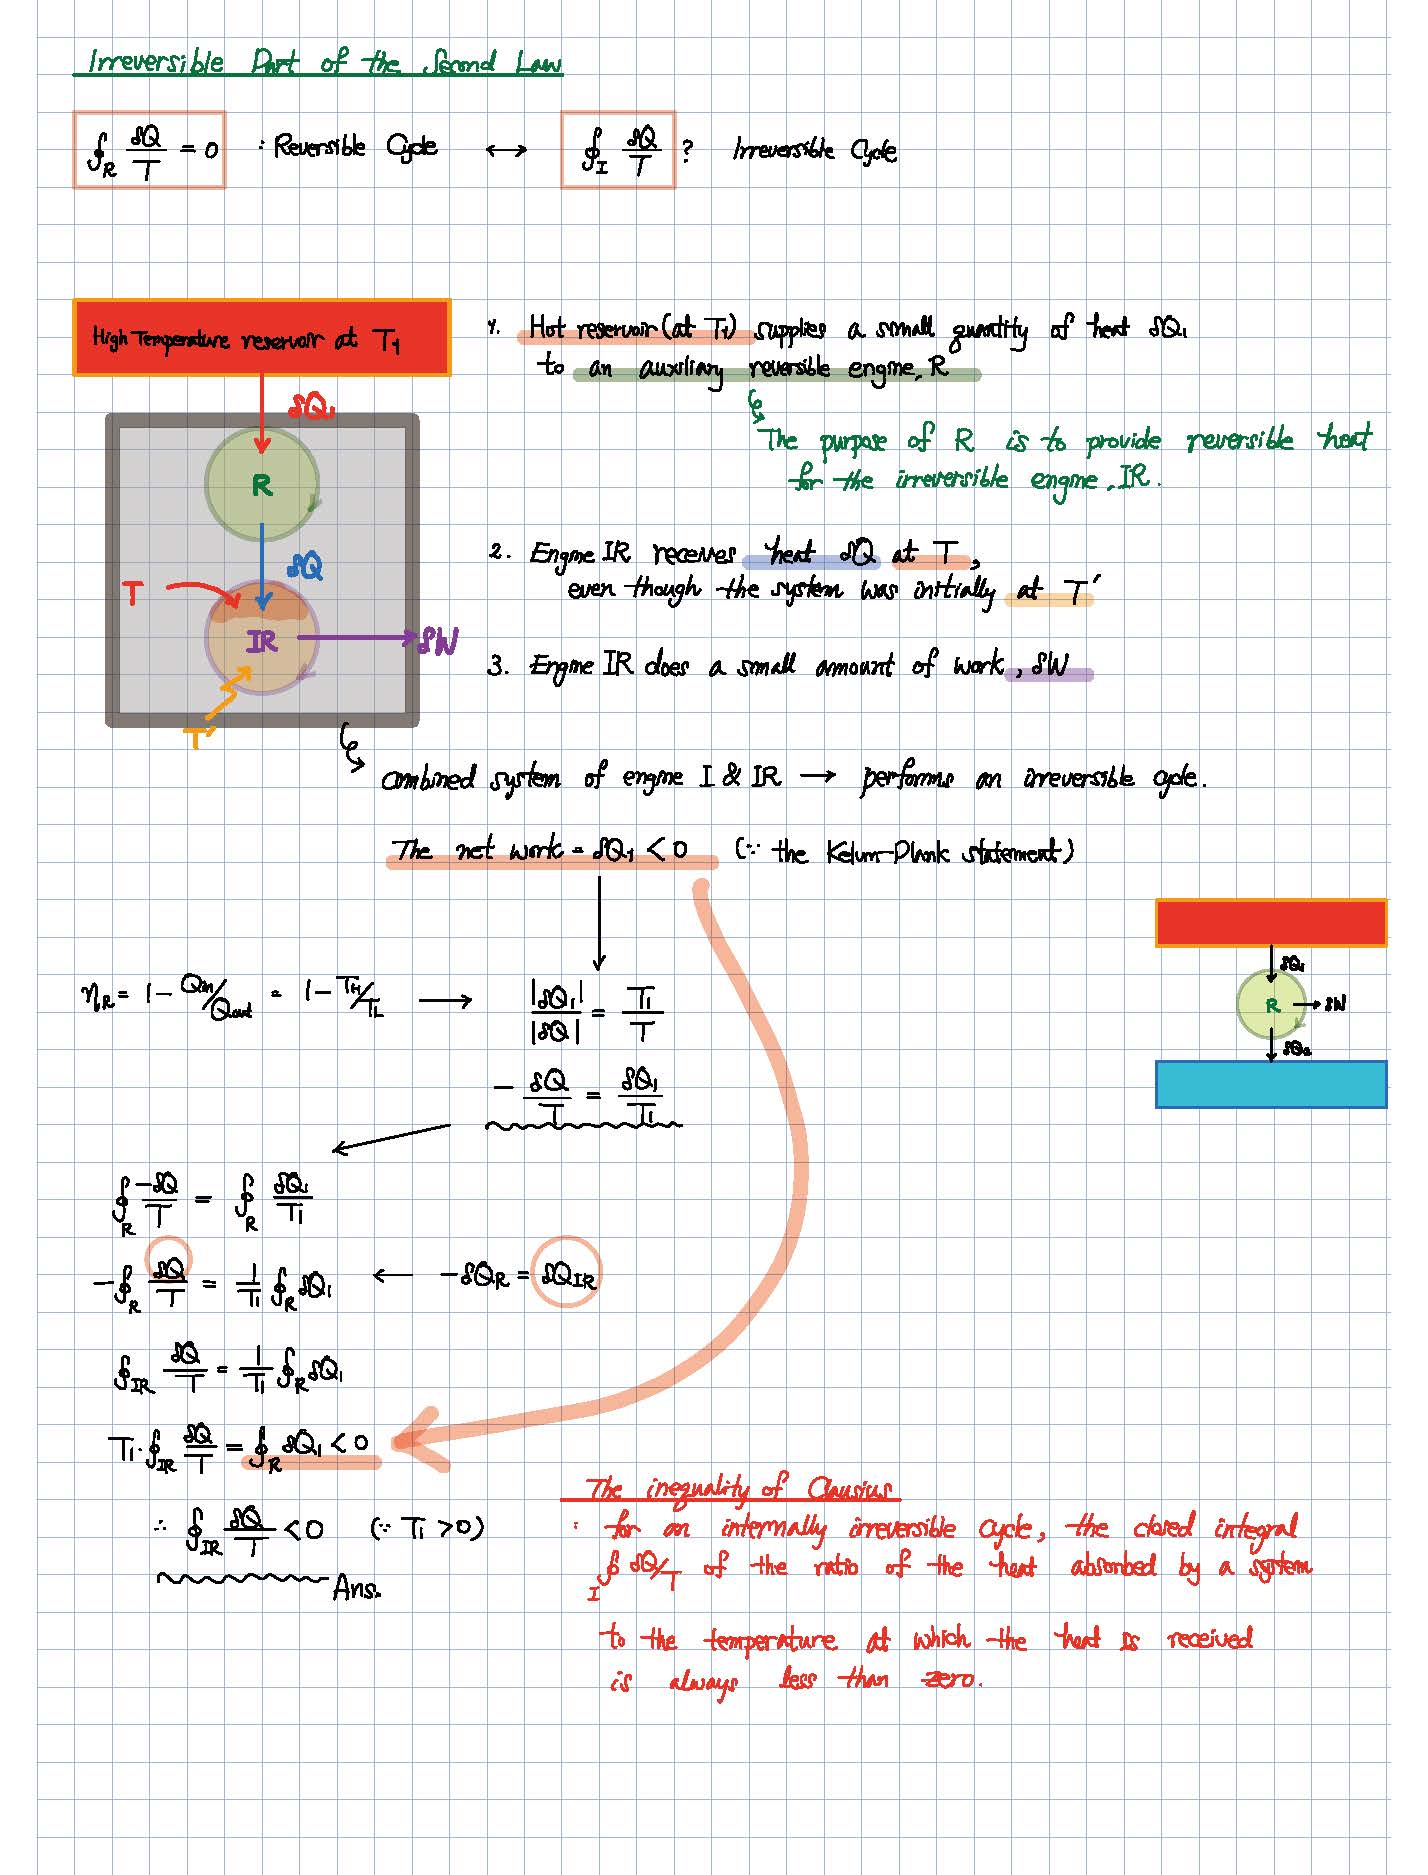 Irreversible Part of the Second Law
∮_R δQ/T = 0 : Reversible Cycle ↔ ∮_I δQ/T ? Irreversible Cycle
High Temperature reservoir at T₁
δQ₁
R
δQ
T
IR
δW
T′
1. Hot reservoir (at T₁) supplies a small quantity of heat δQ₁
to an auxiliary reversible engine, R
The purpose of R is to provide reversible heat
for the irreversible engine, IR.
2. Engine IR receives heat δQ at T,
even though the system was initially at T′
3. Engine IR does a small amount of work, δW
combined system of engine I & IR → performs an irreversible cycle.
The net work = δQ₁ < 0 (∵ the Kelvin-Plank statement)
δQ₁
R → δW
δQ₂
η_R = 1 - Qin/Qout = 1 - T_H/T_L → |δQ₁|/|δQ| = T₁/T
- δQ/T = δQ₁/T₁
∮_R -δQ/T = ∮_R δQ₁/T₁
-∮_R δQ/T = 1/T₁ ∮_R δQ₁ ← -δQ_R = δQ_IR
∮_IR δQ/T = 1/T₁ ∮_R δQ₁
T₁·∮_IR δQ/T = ∮_R δQ₁ < 0
∴ ∮_IR δQ/T < 0 (∵ T₁ > 0)
Ans.
The inequality of Clausius
: for an internally irreversible cycle, the closed integral
∮_I δQ/T of the ratio of the heat absorbed by a system
to the temperature at which the heat is received
is always less than zero.